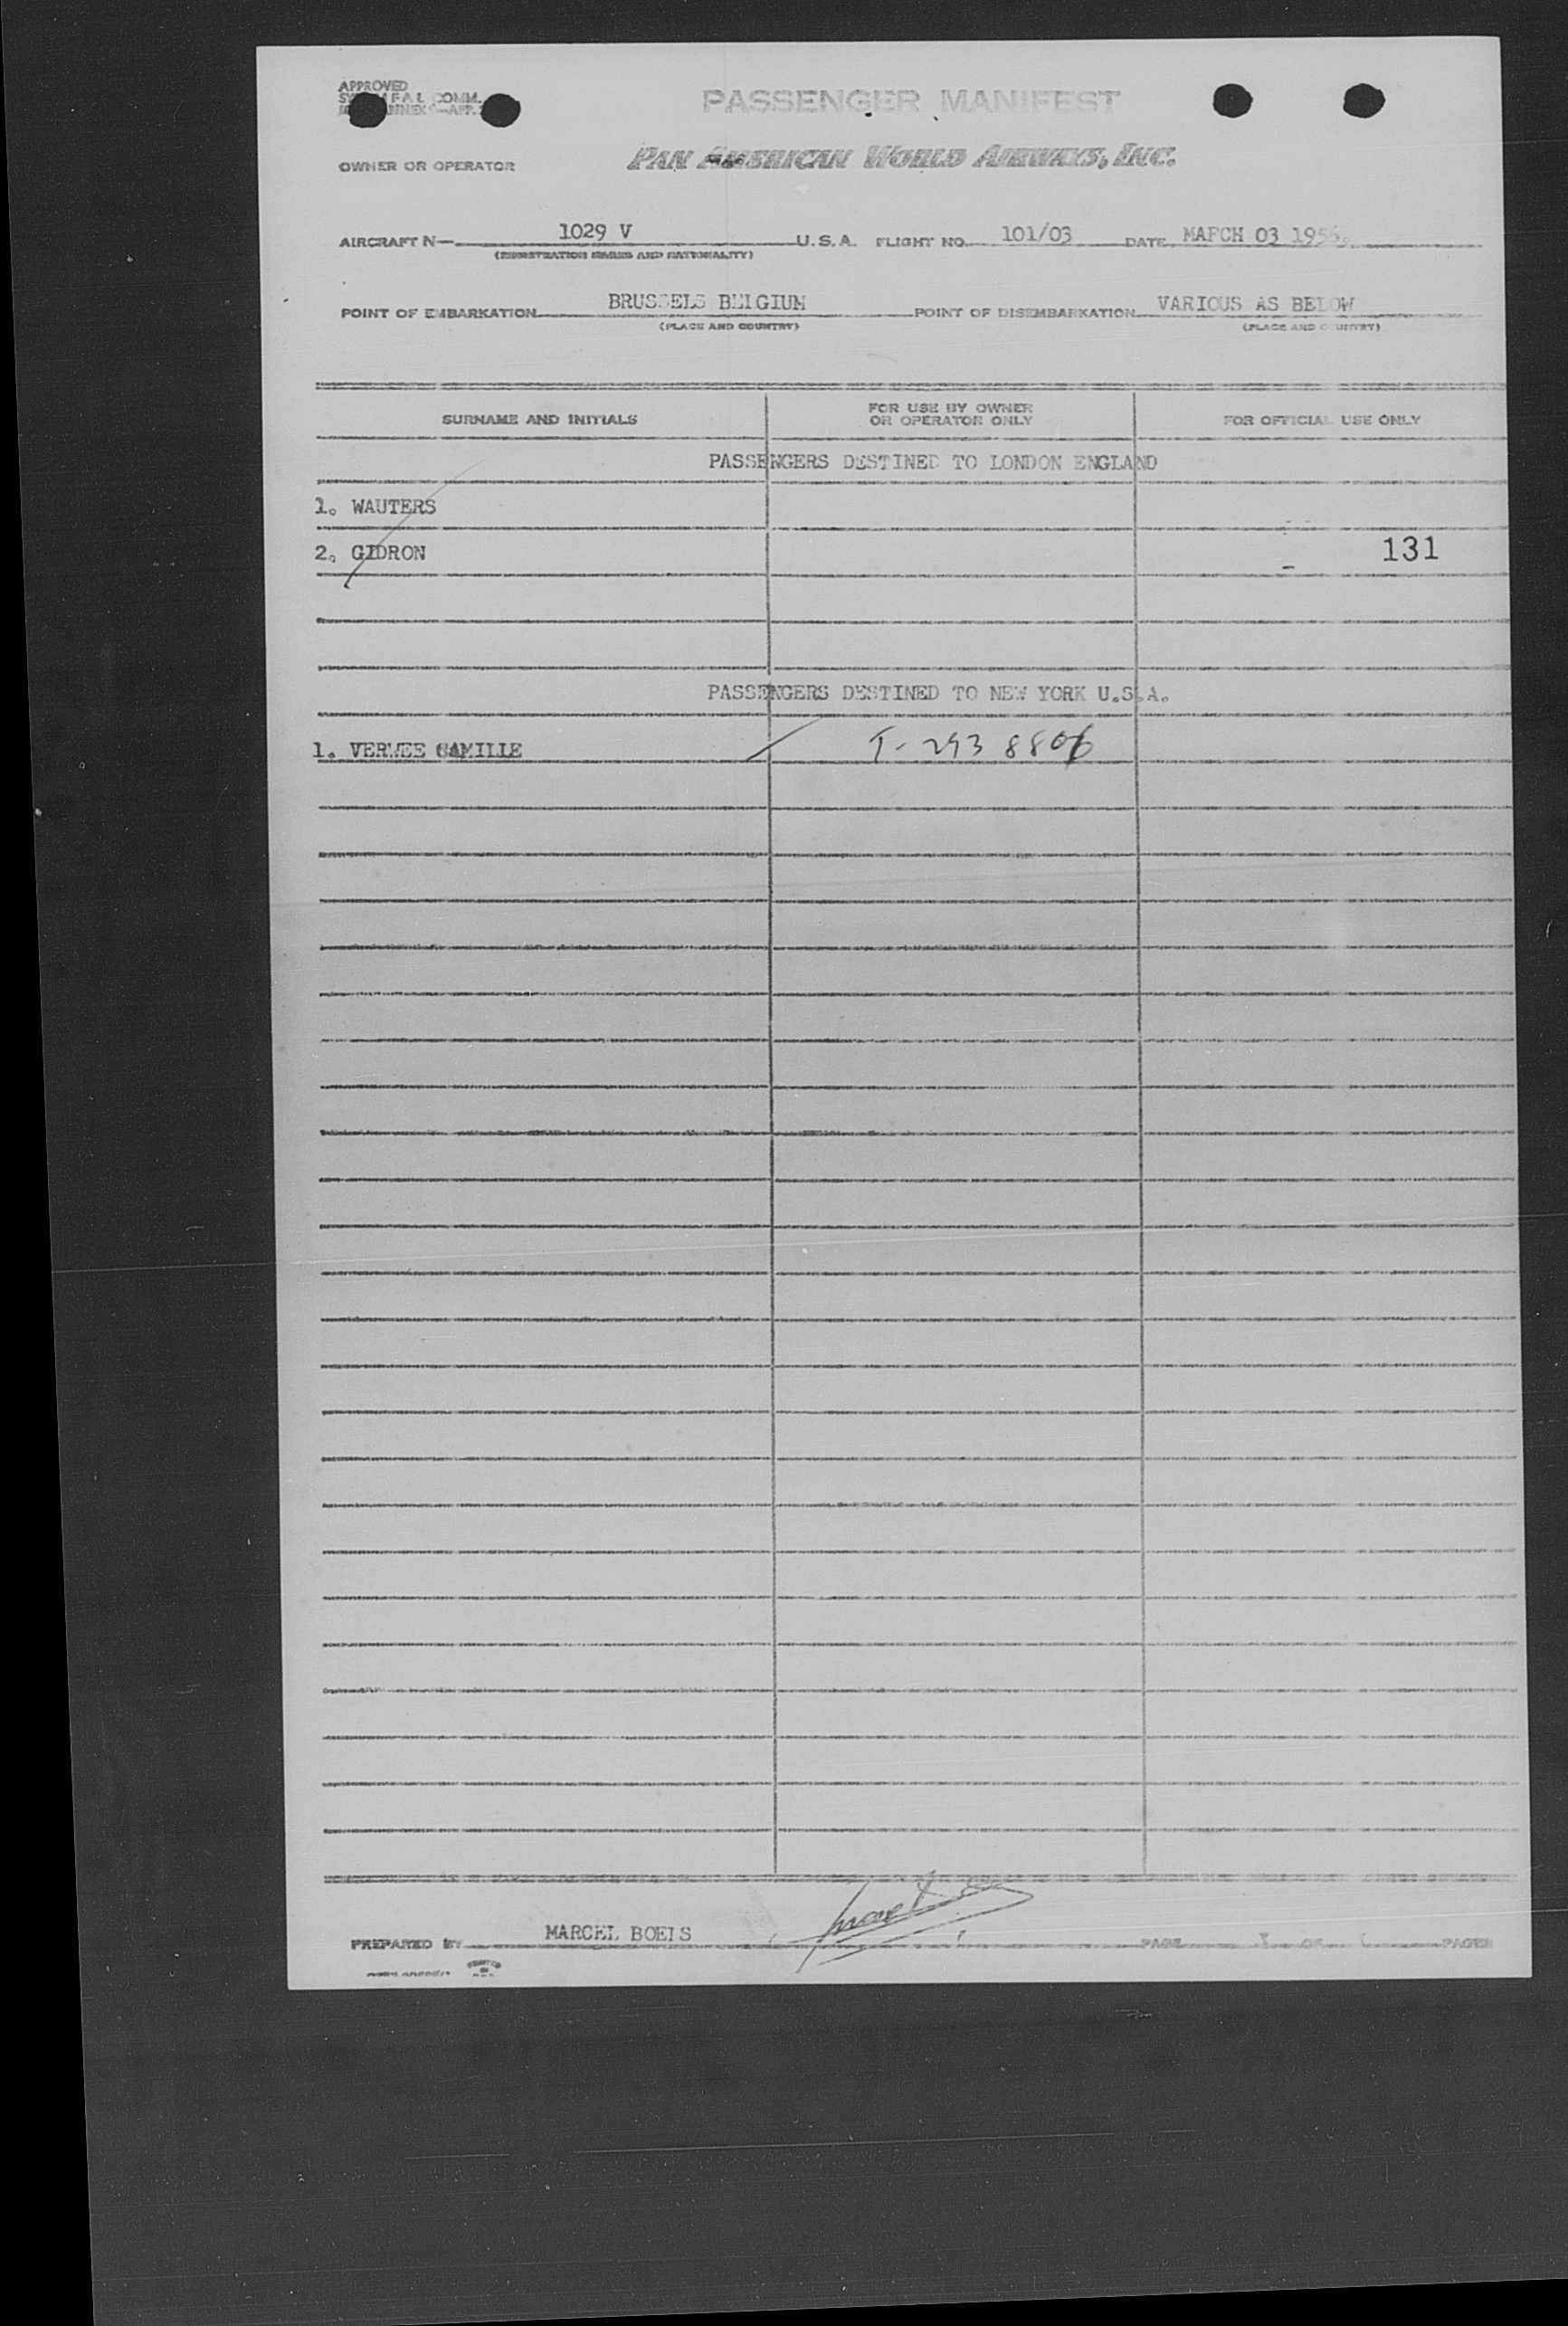 APPROVED
COMM.
PASSENGER MANIFEST
OWNER OR OPERATOR
PAN AMERICAN WORLD AIRWAYS, INC.
AIRCRAFT N— 1029 V U.S.A. FLIGHT NO. 101/03 DATE MARCH 03
(REGISTRATION MARKS AND NATIONALITY)
POINT OF EMBARKATION BRUSSELS BELGIUM POINT OF DISEMBARKATION VARIOUS AS BELOW
(PLACE AND COUNTRY) (PLACE AND COUNTRY)
SURNAME AND INITIALS FOR USE BY OWNER OR OPERATOR ONLY FOR OFFICIAL USE ONLY
PASSENGERS DESTINED TO LONDON ENGLAND
1. WAUTERS
2. GIDRON 131
PASSENGERS DESTINED TO NEW YORK U.S.A.
1. VERMEE CAMILLE T-293 8806
PREPARED BY MARCEL BOEIS PAGE OF PAGES